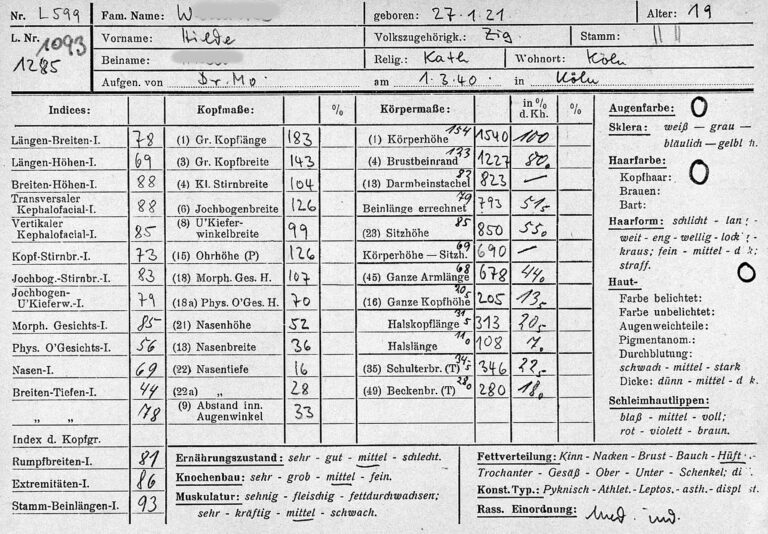 Nr. L 599 Fam. Name: W geboren: 27.1.21 Alter: 19
L. Nr. 1093 Vorname: Hilde Volkszugehörigk.: Zig Stamm:
1285 Beiname: Relig.: Kath Wohnort: Köln
Aufgen. von Dr. Mo am 1.3.40 in Köln
Indices: Kopfmaße: % Körpermaße: in % d. Kh. %
Längen-Breiten-I. 78 (1) Gr. Kopflänge 183 (1) Körperhöhe 154 1540 100
Längen-Höhen-I. 69 (3) Gr. Kopfbreite 143 (4) Brustbeinrand 1227 80.
Breiten-Höhen-I. 88 (4) Kl. Stirnbreite 104 (13) Darmbeinstachel 82 823 —
Transversaler Kephalofacial-I. 88 (6) Jochbogenbreite 126 Beinlänge errechnet 79 793 51,5
Vertikaler Kephalofacial-I. 85 (8) U'Kiefer-winkelbreite 99 (23) Sitzhöhe 85 850 55,0
Kopf-Stirnbr.-I. 73 (15) Ohrhöhe (P) 126 Körperhöhe — Sitzh. 69 690 —
Jochbog.-Stirnbr.-I. 83 (18) Morph. Ges. H. 107 (45) Ganze Armlänge 68 678 44,0
Jochbogen-U'Kieferw.-I. 79 (18a) Phys. O'Ges. H. 70 (16) Ganze Kopfhöhe 205 13,5
Morph. Gesichts-I. 85 (21) Nasenhöhe 52 Halskopflänge 313 20,5
Phys. O'Gesichts-I. 56 (13) Nasenbreite 36 Halslänge 108 7.
Nasen-I. 69 (22) Nasentiefe 16 (35) Schulterbr. (T) 346 22,5
Breiten-Tiefen-I. 44 (22a) „ 28 (49) Beckenbr. (T) 280 18.
„ „ 78 (9) Abstand inn. Augenwinkel 33
Index d. Kopfgr.
Rumpfbreiten-I. 81
Extremitäten-I. 86
Stamm-Beinlängen-I. 93
Augenfarbe: O
Sklera: weiß — grau —
bläulich — gelbl h.
Haarfarbe:
Kopfhaar: O
Brauen:
Bart:
Haarform: schlicht - lan ; -
weit - eng - wellig - lock ; -
kraus; fein - mittel - d k;
straff.
Haut- O
Farbe belichtet:
Farbe unbelichtet:
Augenweichteile:
Pigmentanom.:
Durchblutung:
schwach - mittel - stark
Dicke: dünn - mittel - d k.
Schleimhautlippen:
blaß - mittel - voll;
rot - violett - braun.
Ernährungszustand: sehr - gut - mittel - schlecht.
Knochenbau: sehr - grob - mittel - fein.
Muskulatur: sehnig - fleischig - fettdurchwachsen;
sehr - kräftig - mittel - schwach.
Fettverteilung: Kinn - Nacken - Brust - Bauch - Hüft -
Trochanter - Gesäß - Ober - Unter - Schenkel; di
Konst. Typ.: Pyknisch - Athlet.- Leptos. - asth.- displ st.
Rass. Einordnung: Med. ind.